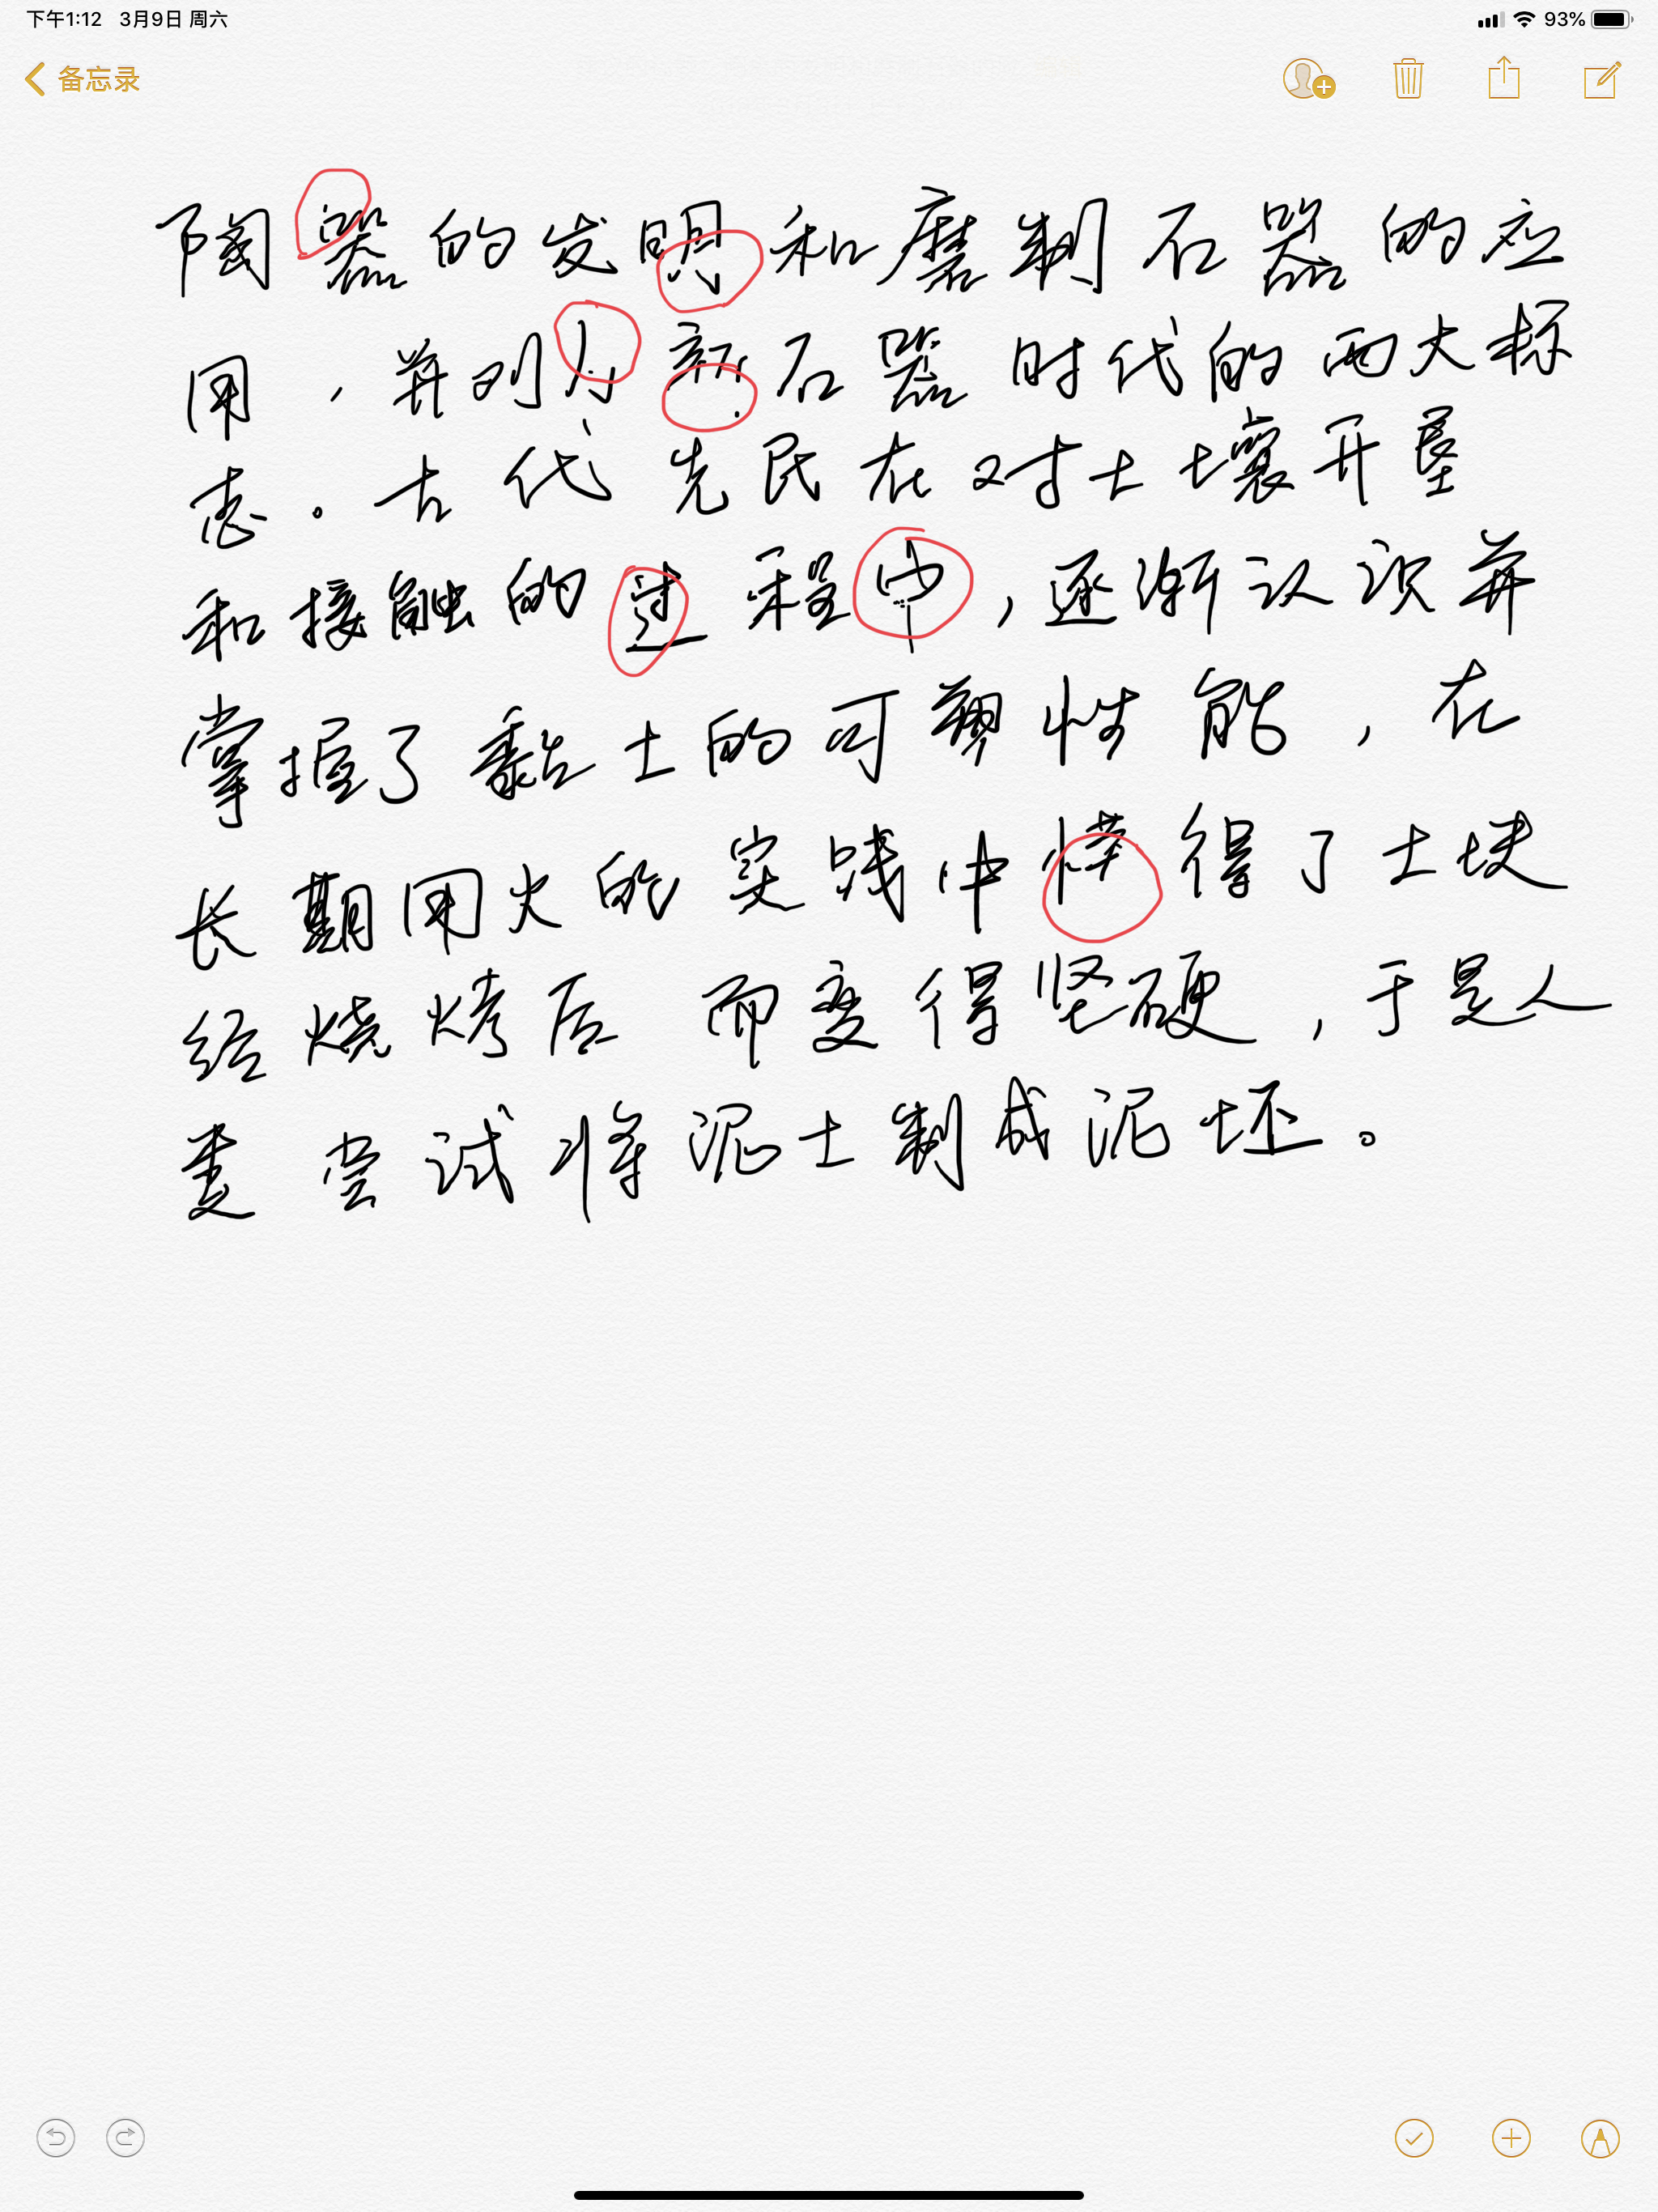 下午1:12 3月9日 周六 93%
备忘录
陶器的发明和磨制石器的应
用，并列为新石器时代的两大标
志。古代先民在对土壤开垦
和接触的过程中，逐渐认识并
掌握了黏土的可塑性能，在
长期用火的实践中懂得了土块
经烧烤后而变得坚硬，于是人
类尝试将泥土制成泥坯。